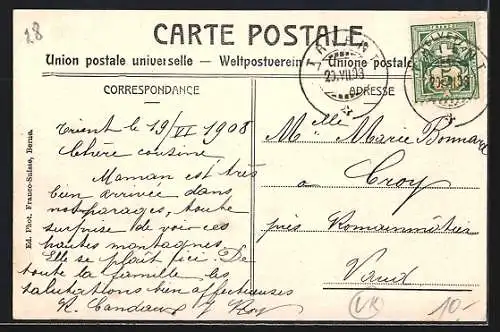 28
CARTE POSTALE
Union postale universelle. — Weltpostverein. — Unione postale
CORRESPONDANCE
ADRESSE
Trient le 19/VI 1908
Chère cousine,
Maman est très
bien arrivée dans
nos parages, toute
surprise de voir ces
hautes montagnes.
Elle se plaît ici. De
toute la famille les
salutations bien affectueuses
Mlle Marie Bonnard
à Croy
près Romainmôtier
Vaud
Ed. Phot. Franco-Suisse, Berne.
VK
10-